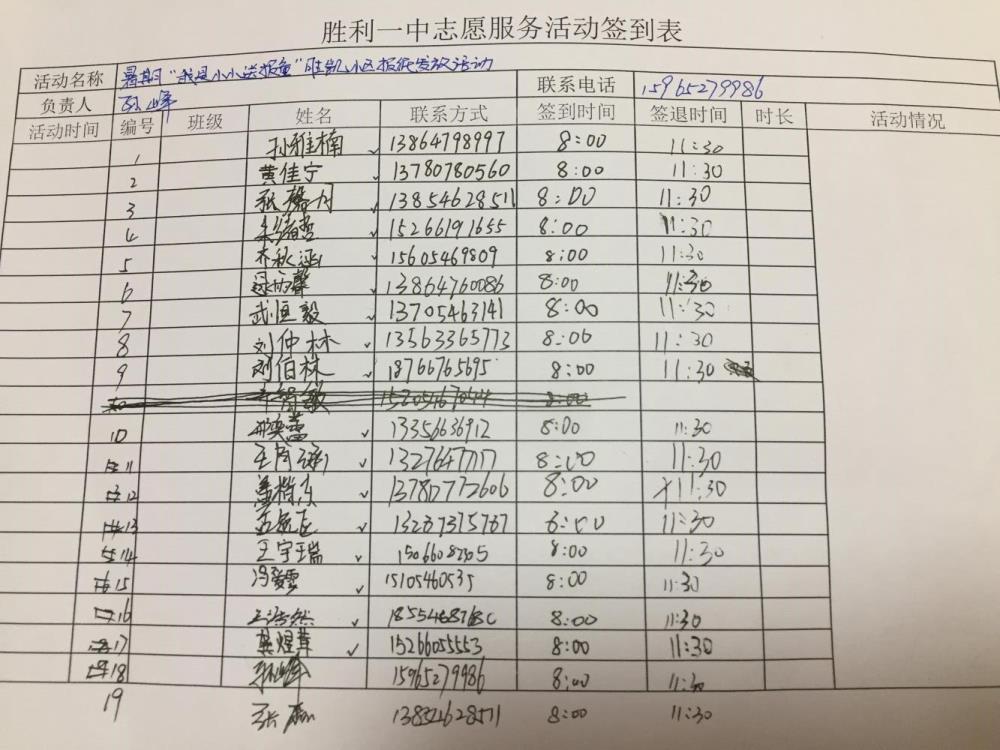 胜利一中志愿服务活动签到表
活动名称 暑期"我是小小送报童"胜凯小区报纸发放活动 联系电话 15965279986
负责人 孙峰
活动时间 编号 班级 姓名 联系方式 签到时间 签退时间 时长 活动情况
1 孙雅楠 ✓ 13864798997 8:00 11:30
2 黄佳宁 ✓ 13780780560 8:00 11:30
3 ✓ 13854628511 8:00 11:30
4 ✓ 15266191655 8:00 11:30
5 ✓ 15605469809 8:00 11:30
6 ✓ 13864760086 8:00 11:30
7 武恒毅 ✓ 13705463141 8:00 11:30
8 刘仲林 ✓ 13563365773 8:00 11:30
9 刘伯林 ✓ 18766765695 8:00 11:30
8:00
10 ✓ 13356636912 8:00 11:30
11 ✓ 8:00 11:30
12 ✓ 13780772606 8:00 11:30
13 ✓ 13287375787 8:00 11:30
14 王宇瑞 ✓ 8:00 11:30
15 冯爱雪 ✓ 15105460535 8:00 11:30
16 王浩然 ✓ 8:00 11:30
17 ✓ 15266055553 8:00 11:30
18 孙峰 15965279986 8:00 11:30
19 13854628511 8:00 11:30